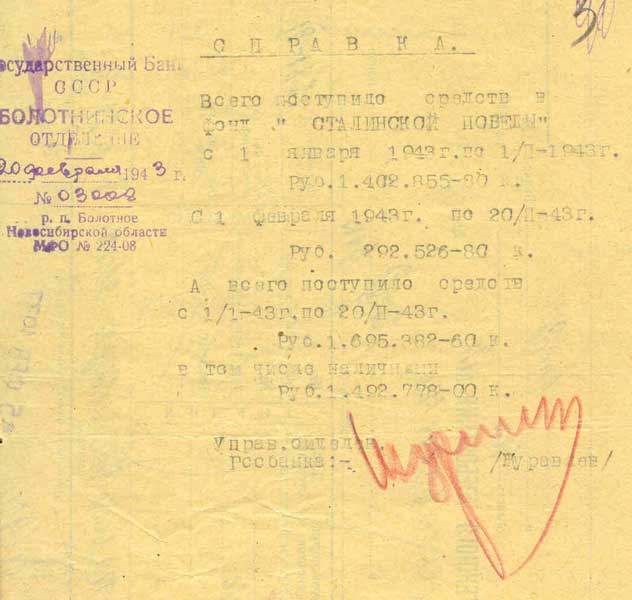 СПРАВКА.
Государственный Банк
СССР
БОЛОТНИНСКОЕ
ОТДЕЛЕНИЕ
20 февраля 1943 г.
№ 03002
р. п. Болотное
Новосибирской области
МФО № 224-08
Всего поступило средств в
фонд " СТАЛИНСКОЙ ПОБЕДЫ"
с 1 января 1943г. по 1/П-1943г.
Руб.1.402.855-80 к.
С 1 февраля 1943г. по 20/П-43г.
Руб. 292.526-80 к.
А всего поступило средств
с 1/1-43г. по 20/П-43г.
Руб.1.695.382-60 к.
в том числе наличными
Руб.1.492.778-00 к.
Управ.отделен.
Госбанка:- /Журавлев/